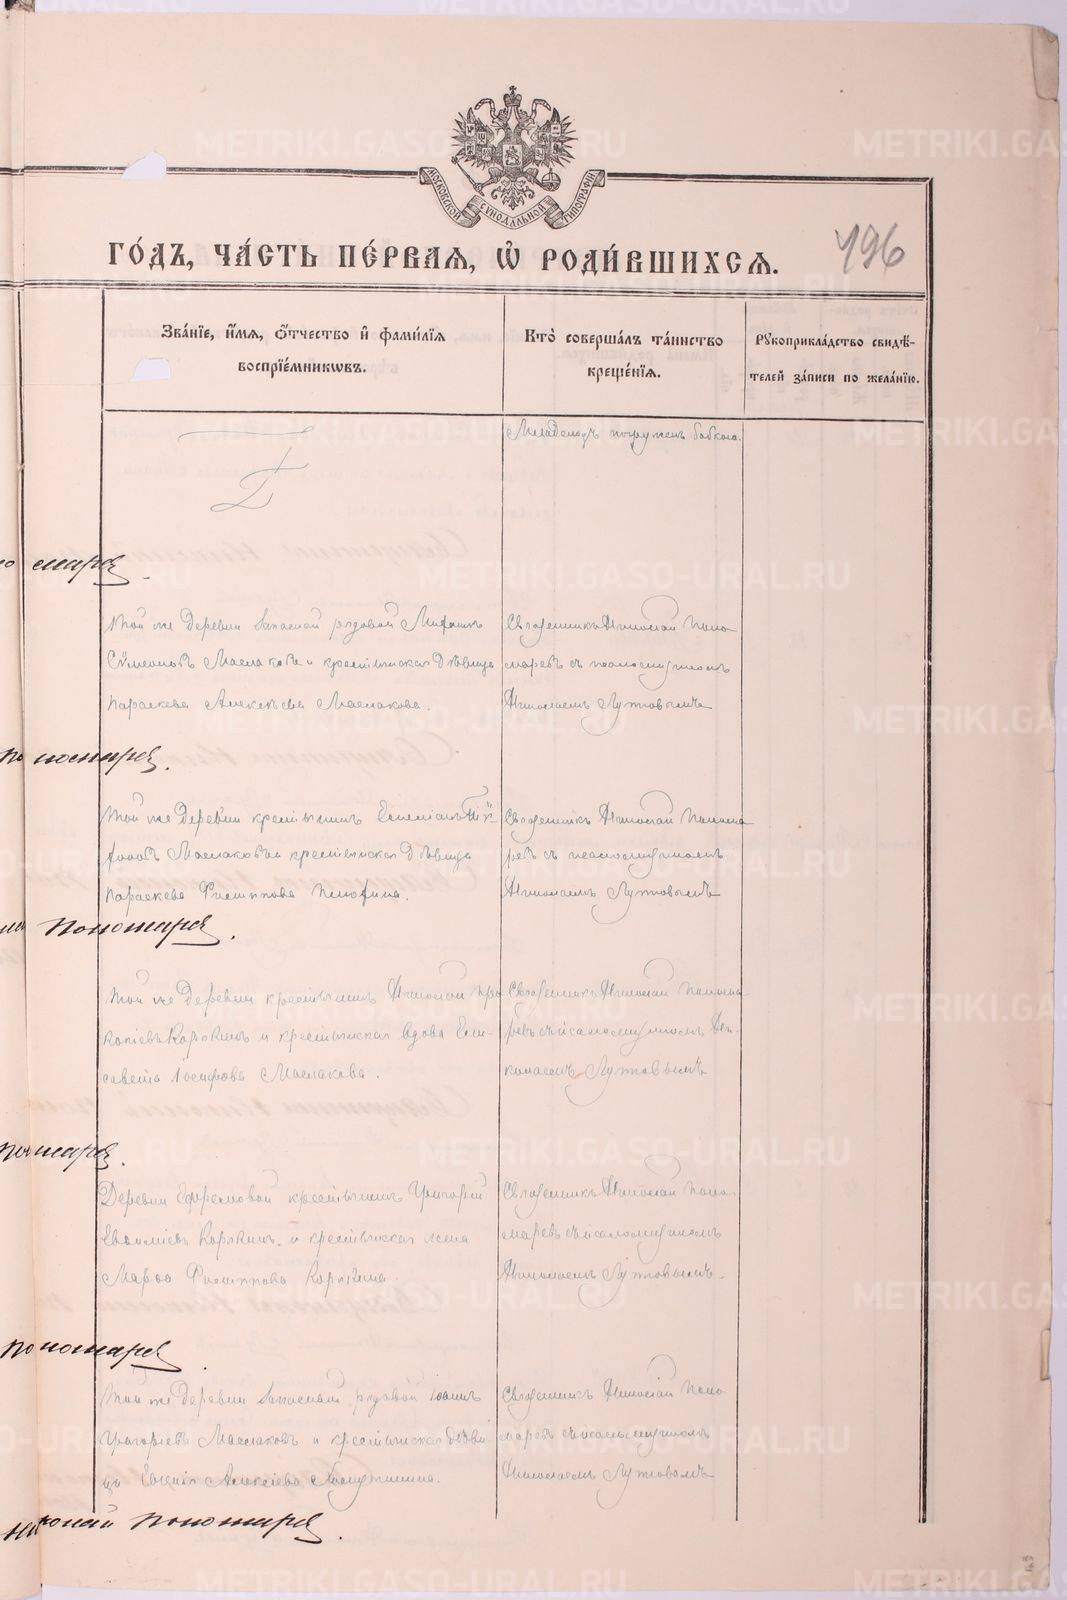 МОСКОВСКОЙ СѴНОДАЛЬНОЙ ТИПОГРАФІИ
ГО́ДЪ, ЧА́СТЬ ПЕ́РВАЯ, Ѽ РОДИ́ВШИХСЯ.
496
Зва́нїе, и́мя, ѻ҆́тчество и҆ фами́лїя
воспрїе́мникѡвъ.
Кто̀ соверша́лъ та́инство
креще́нїя.
Рꙋкоприкла́дство свидѣ́-
телей за́писи по жела́нїю.
Младенецъ погруженъ бабкою.
Той же деревни запасной рядовой
Сѵмеоновъ Маслаковъ и крестьянская дѣвица
Параскева Алексѣева Маслакова.
Священникъ Николай Поно
маревъ съ псаломщикомъ
Николаемъ Лутовымъ
Пономарев.
Той же деревни крестьянинъ
Маслаковъ и крестьянская дѣвица
Параскева Филиппова
Священникъ Николай Понома
ревъ съ псаломщикомъ
Николаемъ Лутовымъ
Пономарев.
Той же деревни крестьянинъ Николай Про
копіевъ Коркинъ и крестьянская вдова Ели-
савета Іосифова Маслакова.
Священникъ Николай Понома-
ревъ съ псаломщикомъ Ни-
колаемъ Лутовымъ
Деревни Ефремовой крестьянинъ Григорій
Евѳиміевъ Коркинъ и крестьянская жена
Марѳа Филиппова Коркина.
Священникъ Николай Поно-
маревъ съ псаломщикомъ
Николаемъ Лутовымъ.
Пономарев
Той же деревни запасной рядовой Іоаннъ
Григоріевъ Маслаковъ и крестьянская дѣви
ца Евгенія Алексіева
Священникъ Николай Поно
маревъ съ псаломщикомъ
Николаемъ Лутовымъ
Николай Пономарев.
METRIKI.GASO-URAL.RU